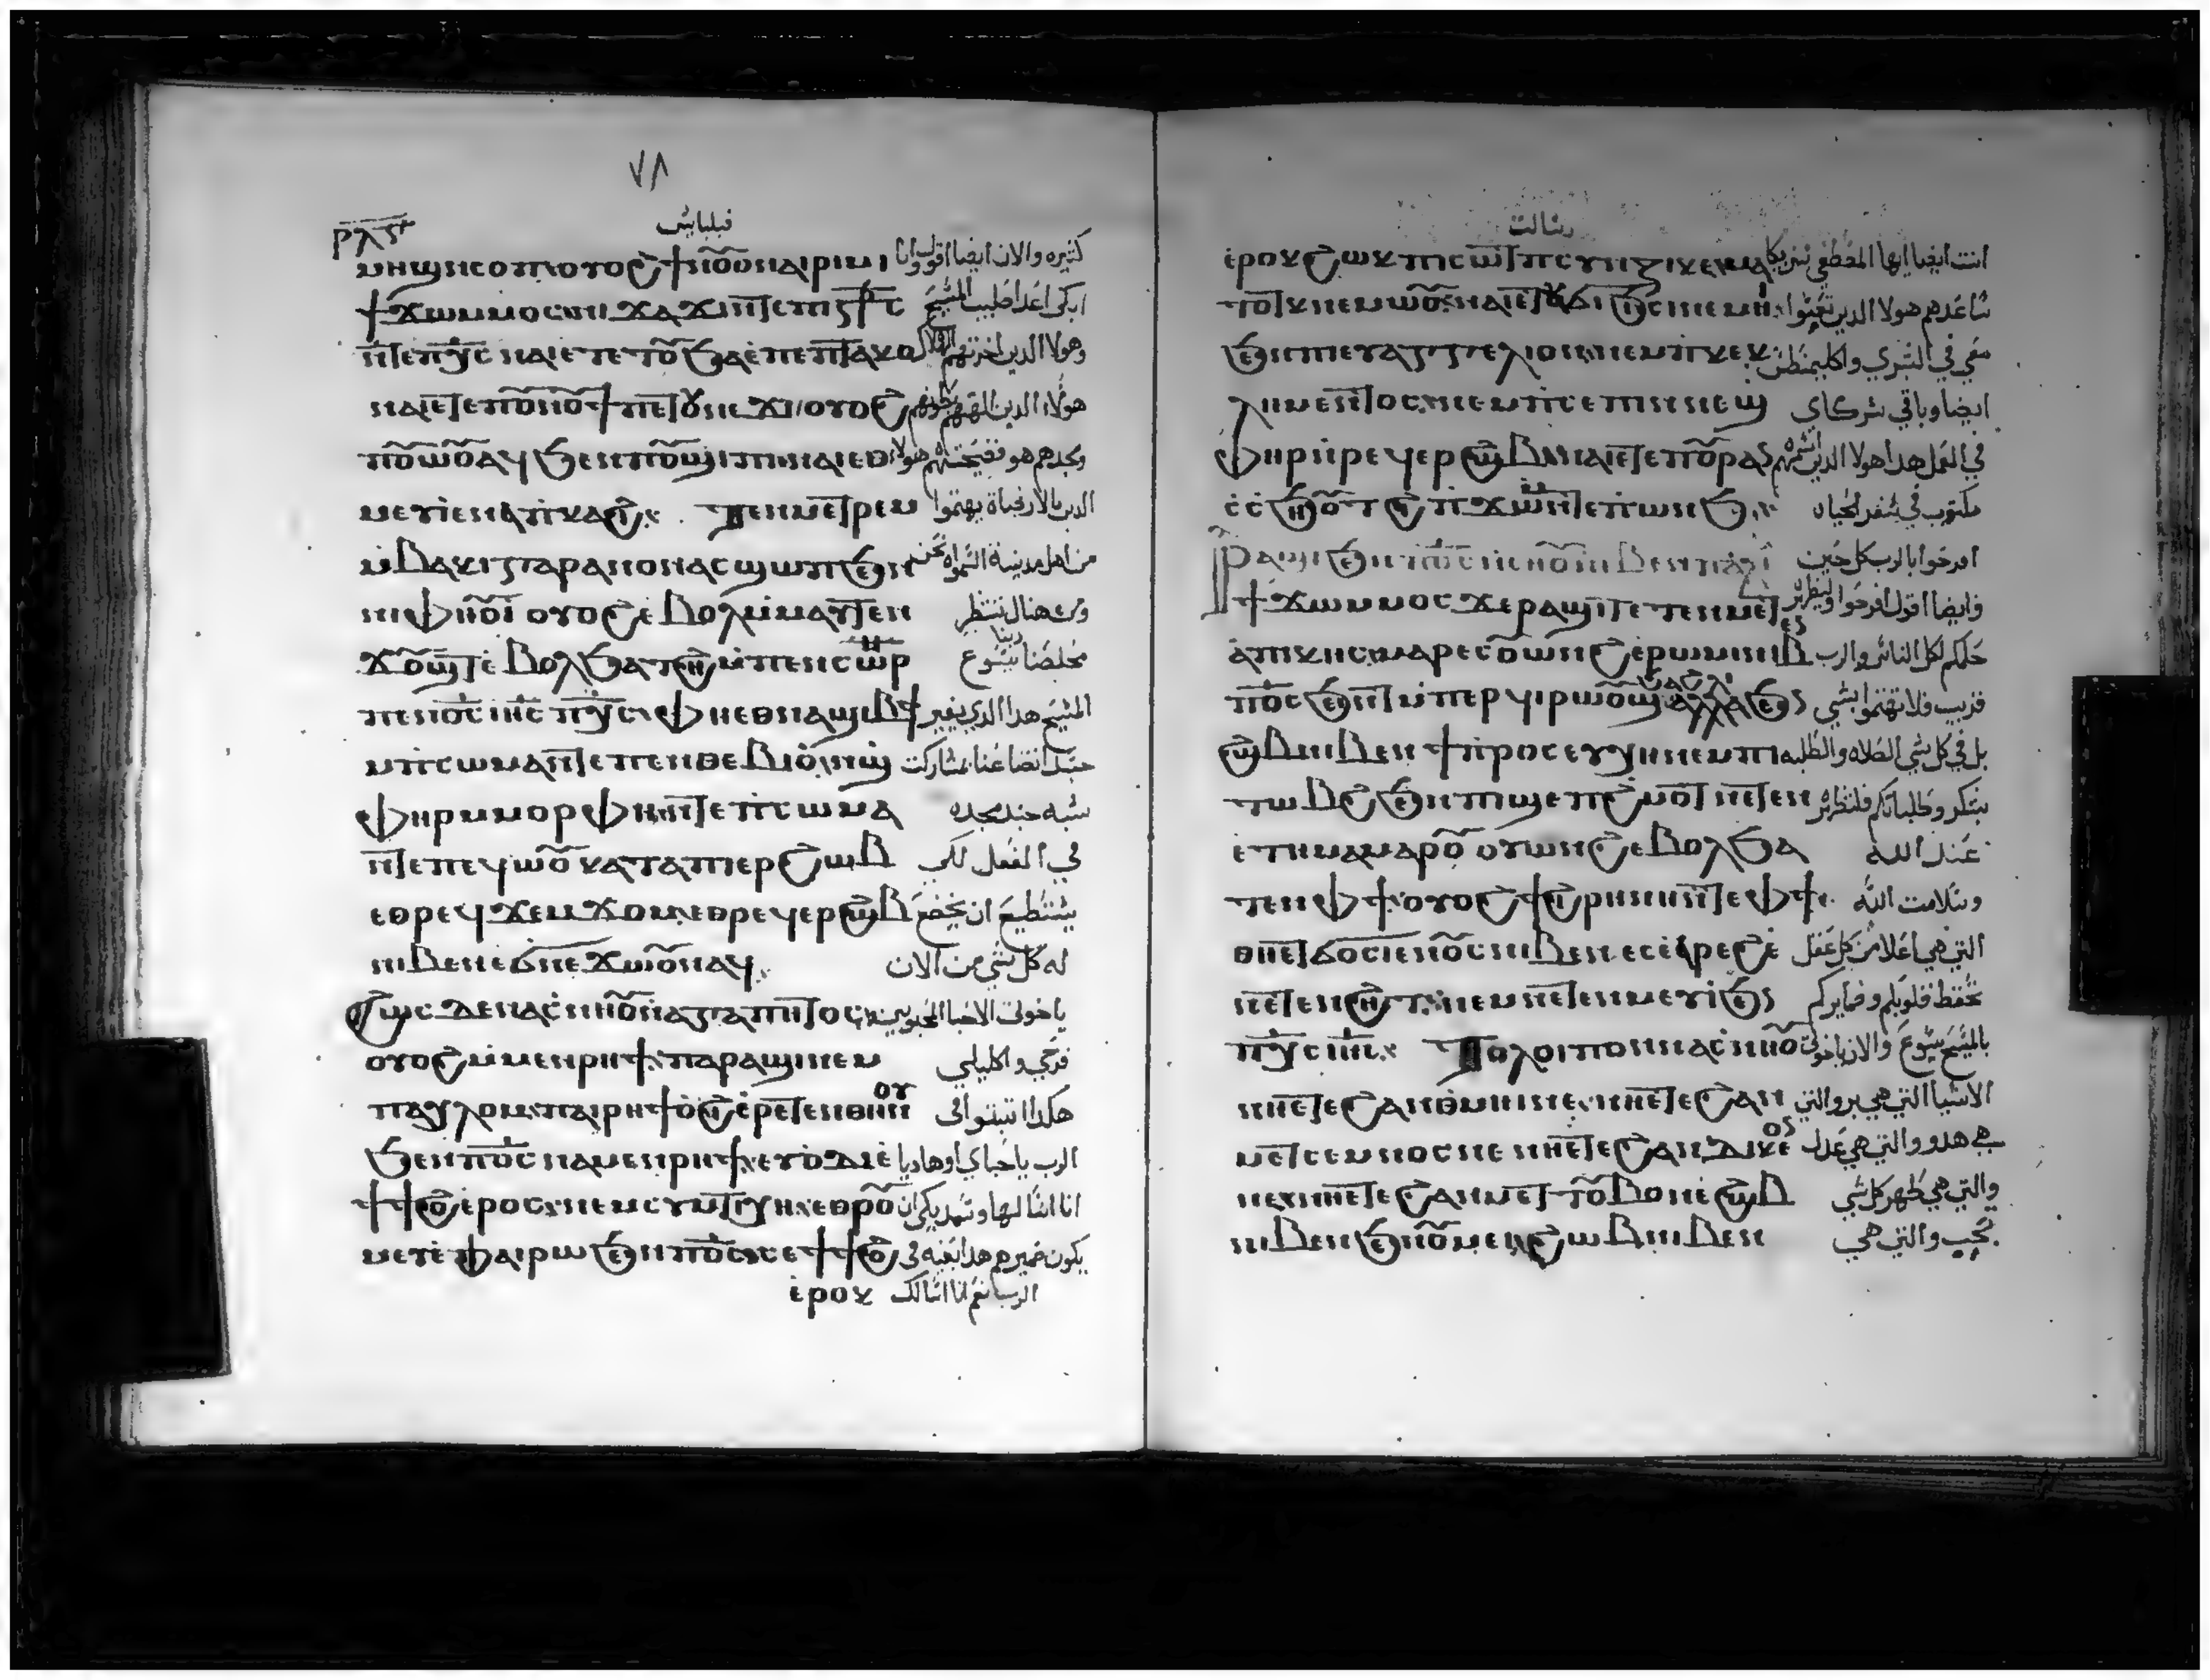 ٧٨
ⲣⲗⲋ فيلبايس
ⲙⲏϣ ⲛⲥⲟⲡ ⲟⲩⲟϩ ϯⲛⲟⲩ كثيره والان ايضا اقول وانا
ϯϫⲱ ⲙⲙⲟⲥ ⲛⲓϫⲁϫⲓ ⲛⲧⲉ ⲡⲓ ابكى اعدا صليب المسيح
ⲛⲧⲉ ⲡⲭⲥ ⲛⲁⲓ ⲉⲧⲉ ⲧⲟⲩϧⲁⲉ ⲡⲉ ⲡⲧⲁⲕⲟ وهولا الدين اخرتهم الهلاك
ⲛⲁⲓ ⲉⲧⲉ ⲡⲟⲩⲛⲟⲩϯ ⲡⲉ ⲧⲟⲩⲛⲉϫⲓ ⲟⲩⲟϩ هولا الدين الههم بطونهم
ⲡⲟⲩⲱⲟⲩ ⲁϥϧⲉⲛ ⲡⲟⲩϣⲓⲡⲓ ⲛⲁⲓ ⲉⲑ ومجدهم هو فضيحتهم هولا
ⲙⲉⲩⲓ ⲉⲛⲁⲡⲕⲁϩⲓ ⲧⲉⲛⲙⲉⲧⲣⲉⲙ الدين بالارضياة يهتموا
ⲙⲃⲁⲕⲓ ⲅⲁⲣ ⲁⲛⲟⲛ ⲁⲥϣⲱⲡ ϧⲉⲛ من اهل مدينة السمواة نحن
ⲛⲓⲫⲏⲟⲩⲓ ⲟⲩⲟϩ ⲉⲃⲟⲗ ⲙⲙⲁⲩ ⲧⲉⲛ ومن هناك ننتظر
ϫⲟⲩϣⲧ ⲉⲃⲟⲗ ϧⲁⲧϩⲏ ⲙⲡⲉⲛⲥⲱⲣ مخلصنا ربنا يسوع
ⲡⲉⲛⲟⲥ ⲓⲏⲥ ⲡⲭⲥ ⲫⲏ ⲉⲑⲛⲁϣⲓⲃϯ المسيح هدا الدي يغير
ⲙⲡⲥⲱⲙⲁ ⲛⲧⲉ ⲡⲉⲛⲑⲉⲃⲓⲟ ⲛϣ جسد اتضاعنا بمشاركت
ⲫⲏⲣ ⲙⲙⲟⲣⲫⲏ ⲛⲧⲉ ⲡⲥⲱⲙⲁ شبه جسد مجده
ⲛⲧⲉ ⲡⲉϥⲱⲟⲩ ⲕⲁⲧⲁ ⲡⲓⲉⲣϩⲱⲃ في الفعل لكي
ⲉⲑⲣⲉϥϫⲉⲙϫⲟⲙ ⲉⲑⲣⲉϥⲉⲣϩⲱⲃ يستطيع ان يخضع
ⲛⲓⲃⲉⲛ ϭⲛⲉϫⲱⲟⲩ ⲛⲁϥ له كل شي من الان
ϩⲱⲥⲇⲉ ⲛⲁⲥⲛⲏⲟⲩ ⲛⲁⲅⲁⲡⲏⲧⲟⲥ ياخوتي الاحبا المحبوبين
ⲟⲩⲟϩ ⲙⲙⲉⲛⲣⲏϯ ⲡⲁⲣⲁϣⲓ ⲛⲉⲙ فرحي واكليلي
ⲡⲁⲭⲗⲟⲙ ⲡⲁⲓⲣⲏϯ ⲟϩⲓ ⲉⲣⲉⲧⲉⲛ ⲑⲏⲛⲟⲩ هكدا اتبتوا في
ϧⲉⲛ ⲡⲟⲥ ⲛⲁⲙⲉⲛⲣⲏϯ ⲉⲩⲟⲇⲓⲁ الرب ياحباي اوهاديا
ϯϯϩⲟ ⲉⲣⲟⲥ ⲛⲉⲙ ⲥⲩⲛⲧⲓⲭⲏ ⲉⲑⲣⲟⲩ انا اسالها وسنديكي ان
ⲙⲉⲩⲓ ⲉⲫⲁⲓ ⲣⲱ ϧⲉⲛ ⲡⲟⲥ ⲥⲉ ϯϯϩⲟ يكون ضميرهم هدا بعينه في
ⲉⲣⲟⲕ الرب نعم انا اسالك
رسالت
ⲉⲣⲟⲕ ϩⲱⲕ ⲡⲓⲥⲱⲧⲡ ⲥⲩⲛⲍⲓⲕⲉ ⲙⲁ انت ايضا ايها المصطفى سنزيكا
ⲧⲟⲧⲕ ⲛⲉⲙⲱⲟⲩ ⲛⲁⲓ ⲉⲧⲁⲩϭⲓϧⲓⲥⲓ ⲛⲉⲙⲏⲓ ساعدهم هولا الدين تعبوا
ϧⲉⲛ ⲡⲓⲉⲩⲁⲅⲅⲉⲗⲓⲟⲛ ⲛⲉⲙ ⲡⲕⲉⲕ معي في البشري واكليمنطس
ⲗⲏⲙⲉⲛⲧⲟⲥ ⲛⲉⲙ ⲡⲥⲉⲡⲓ ⲛⲛⲉϣ ايضا وباقي شركاي
ⲫⲏⲣ ⲛⲣⲉϥⲉⲣϩⲱⲃ ⲛⲁⲓ ⲉⲧⲉ ⲡⲟⲩⲣⲁⲛ في العمل هدا هولا الدين اسمهم
ⲥϧⲏⲟⲩⲧ ϩⲓ ⲡϫⲱⲙ ⲛⲧⲉ ⲡⲱⲛϧ مكتوب في سفر الحياه
ⲣⲁϣⲓ ϧⲉⲛ ⲡⲟⲥ ⲛⲥⲏⲟⲩ ⲛⲓⲃⲉⲛ ⲡⲁⲗⲓⲛ افرحوا بالرب كل حين
ϯϫⲱ ⲙⲙⲟⲥ ϫⲉ ⲣⲁϣⲓ ⲧⲉⲧⲉⲛⲙⲉⲧ وايضا اقول افرحوا وليظهر
ⲉⲡⲓⲕⲏⲥ ⲙⲁⲣⲉⲥⲟⲩⲱⲛϩ ⲉⲣⲱⲙⲓ ⲛⲓⲃⲉⲛ حلمكم لكل الناس والرب
ⲡⲟⲥ ϧⲉⲛⲧ ⲙⲡⲉⲣϥⲓⲣⲱⲟⲩϣ ⲁⲗⲗⲁ ϧⲉⲛ قريب فلا تهتموا بشي
ϩⲱⲃ ⲛⲓⲃⲉⲛ ϯⲡⲣⲟⲥⲉⲩⲭⲏ ⲛⲉⲙ ⲡⲓ بل في كل شي الصلاه والطلبه
ⲧⲱⲃϩ ϧⲉⲛ ⲡϣⲉⲡϩⲙⲟⲧ ⲛⲉⲧⲉⲛ بشكر وطلباتكم فلتظهر
ⲉⲧⲏⲙⲁ ⲙⲁⲣⲟⲩⲟⲩⲱⲛϩ ⲉⲃⲟⲗ ϧⲁ عند الله
ⲧⲉⲛ ⲫϯ ⲟⲩⲟϩ ϯϩⲓⲣⲏⲛⲏ ⲛⲧⲉ ⲫϯ وسلامت الله
ⲑⲏ ⲉⲧϭⲟⲥⲓ ⲉⲛⲟⲩⲥ ⲛⲓⲃⲉⲛ ⲉⲥⲉⲁⲣⲉϩ ⲉ التي هي اعلا من كل عقل
ⲛⲉⲧⲉⲛϩⲏⲧ ⲛⲉⲙ ⲛⲉⲧⲉⲛⲙⲉⲩⲓ ϧⲉⲛ تحفظ قلوبكم وضمايركم
ⲡⲭⲥ ⲓⲏⲥ ⲧⲟⲗⲟⲓⲡⲟⲛ ⲛⲁⲥⲛⲏⲟⲩ بالمسيح يسوع والان ياخوتي
ⲛⲏ ⲉⲧⲉ ϩⲁⲛⲑⲙⲏⲓ ⲛⲉ ⲛⲏ ⲉⲧⲉ ϩⲁⲛ الاشيا التي هي بر والتي
ⲙⲉⲧⲥⲉⲙⲛⲟⲥ ⲛⲉ ⲛⲏ ⲉⲧⲉ ϩⲁⲛⲇⲓⲕⲉⲟⲛ هي هدو والتي هي عدل
ⲛⲉ ⲛⲏ ⲉⲧⲉ ϩⲁⲛⲙⲉⲧⲧⲟⲩⲃⲟ ⲛⲉ ϩⲱⲃ والتي هي طهر كل شي
ⲛⲓⲃⲉⲛ ϧⲉⲛ ⲟⲩⲙⲉⲓ ϩⲱⲃ ⲛⲓⲃⲉⲛ بحب والتي هي